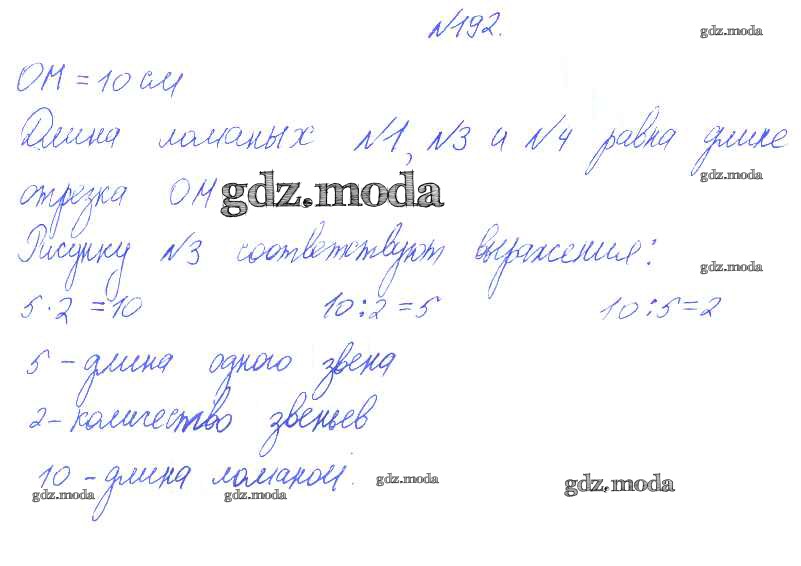 №192.
gdz.moda
ОМ = 10 см
Длина ломаных №1, №3 и №4 равна длине
gdz.moda
отрезка ОМ
gdz.moda
Рисунку №3 соответствуют выражения:
gdz.moda
5·2=10 10:2=5 10:5=2
5 - длина одного звена
2 - количество звеньев
10 - длина ломаной.
gdz.moda
gdz.moda
gdz.moda
gdz.moda